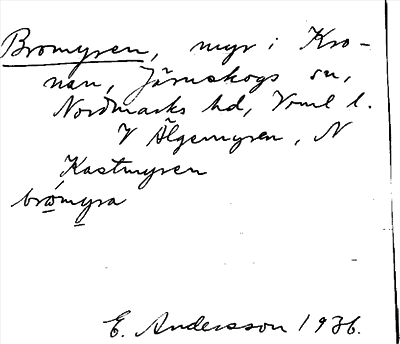 Bromyren, myr i Kro-
nan, Järnskogs sn,
Nordmarks hd, Vrml l.
V Älgemyren, N
Kastmyren
brómyra
E. Andersson 1936.